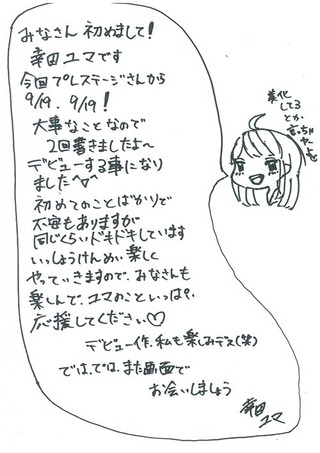 みなさん 初めまして！
幸田ユマです
今回プレステージさんから
9/19. 9/19！
大事なことなので
2回書きましたよ〜
デビューする事になり
ました^▽^
初めてのことばかりで
不安もありますが
同じくらいドキドキしています
いっしょうけんめい楽しく
やっていきますので、みなさんも
楽しんで、ユマのこといっぱい
応援してください♡
デビュー作、私も楽しみデス(笑)
では、では、また画面で
お会いしましょう
幸田
ユマ
美化
してる
とか
言っちゃ